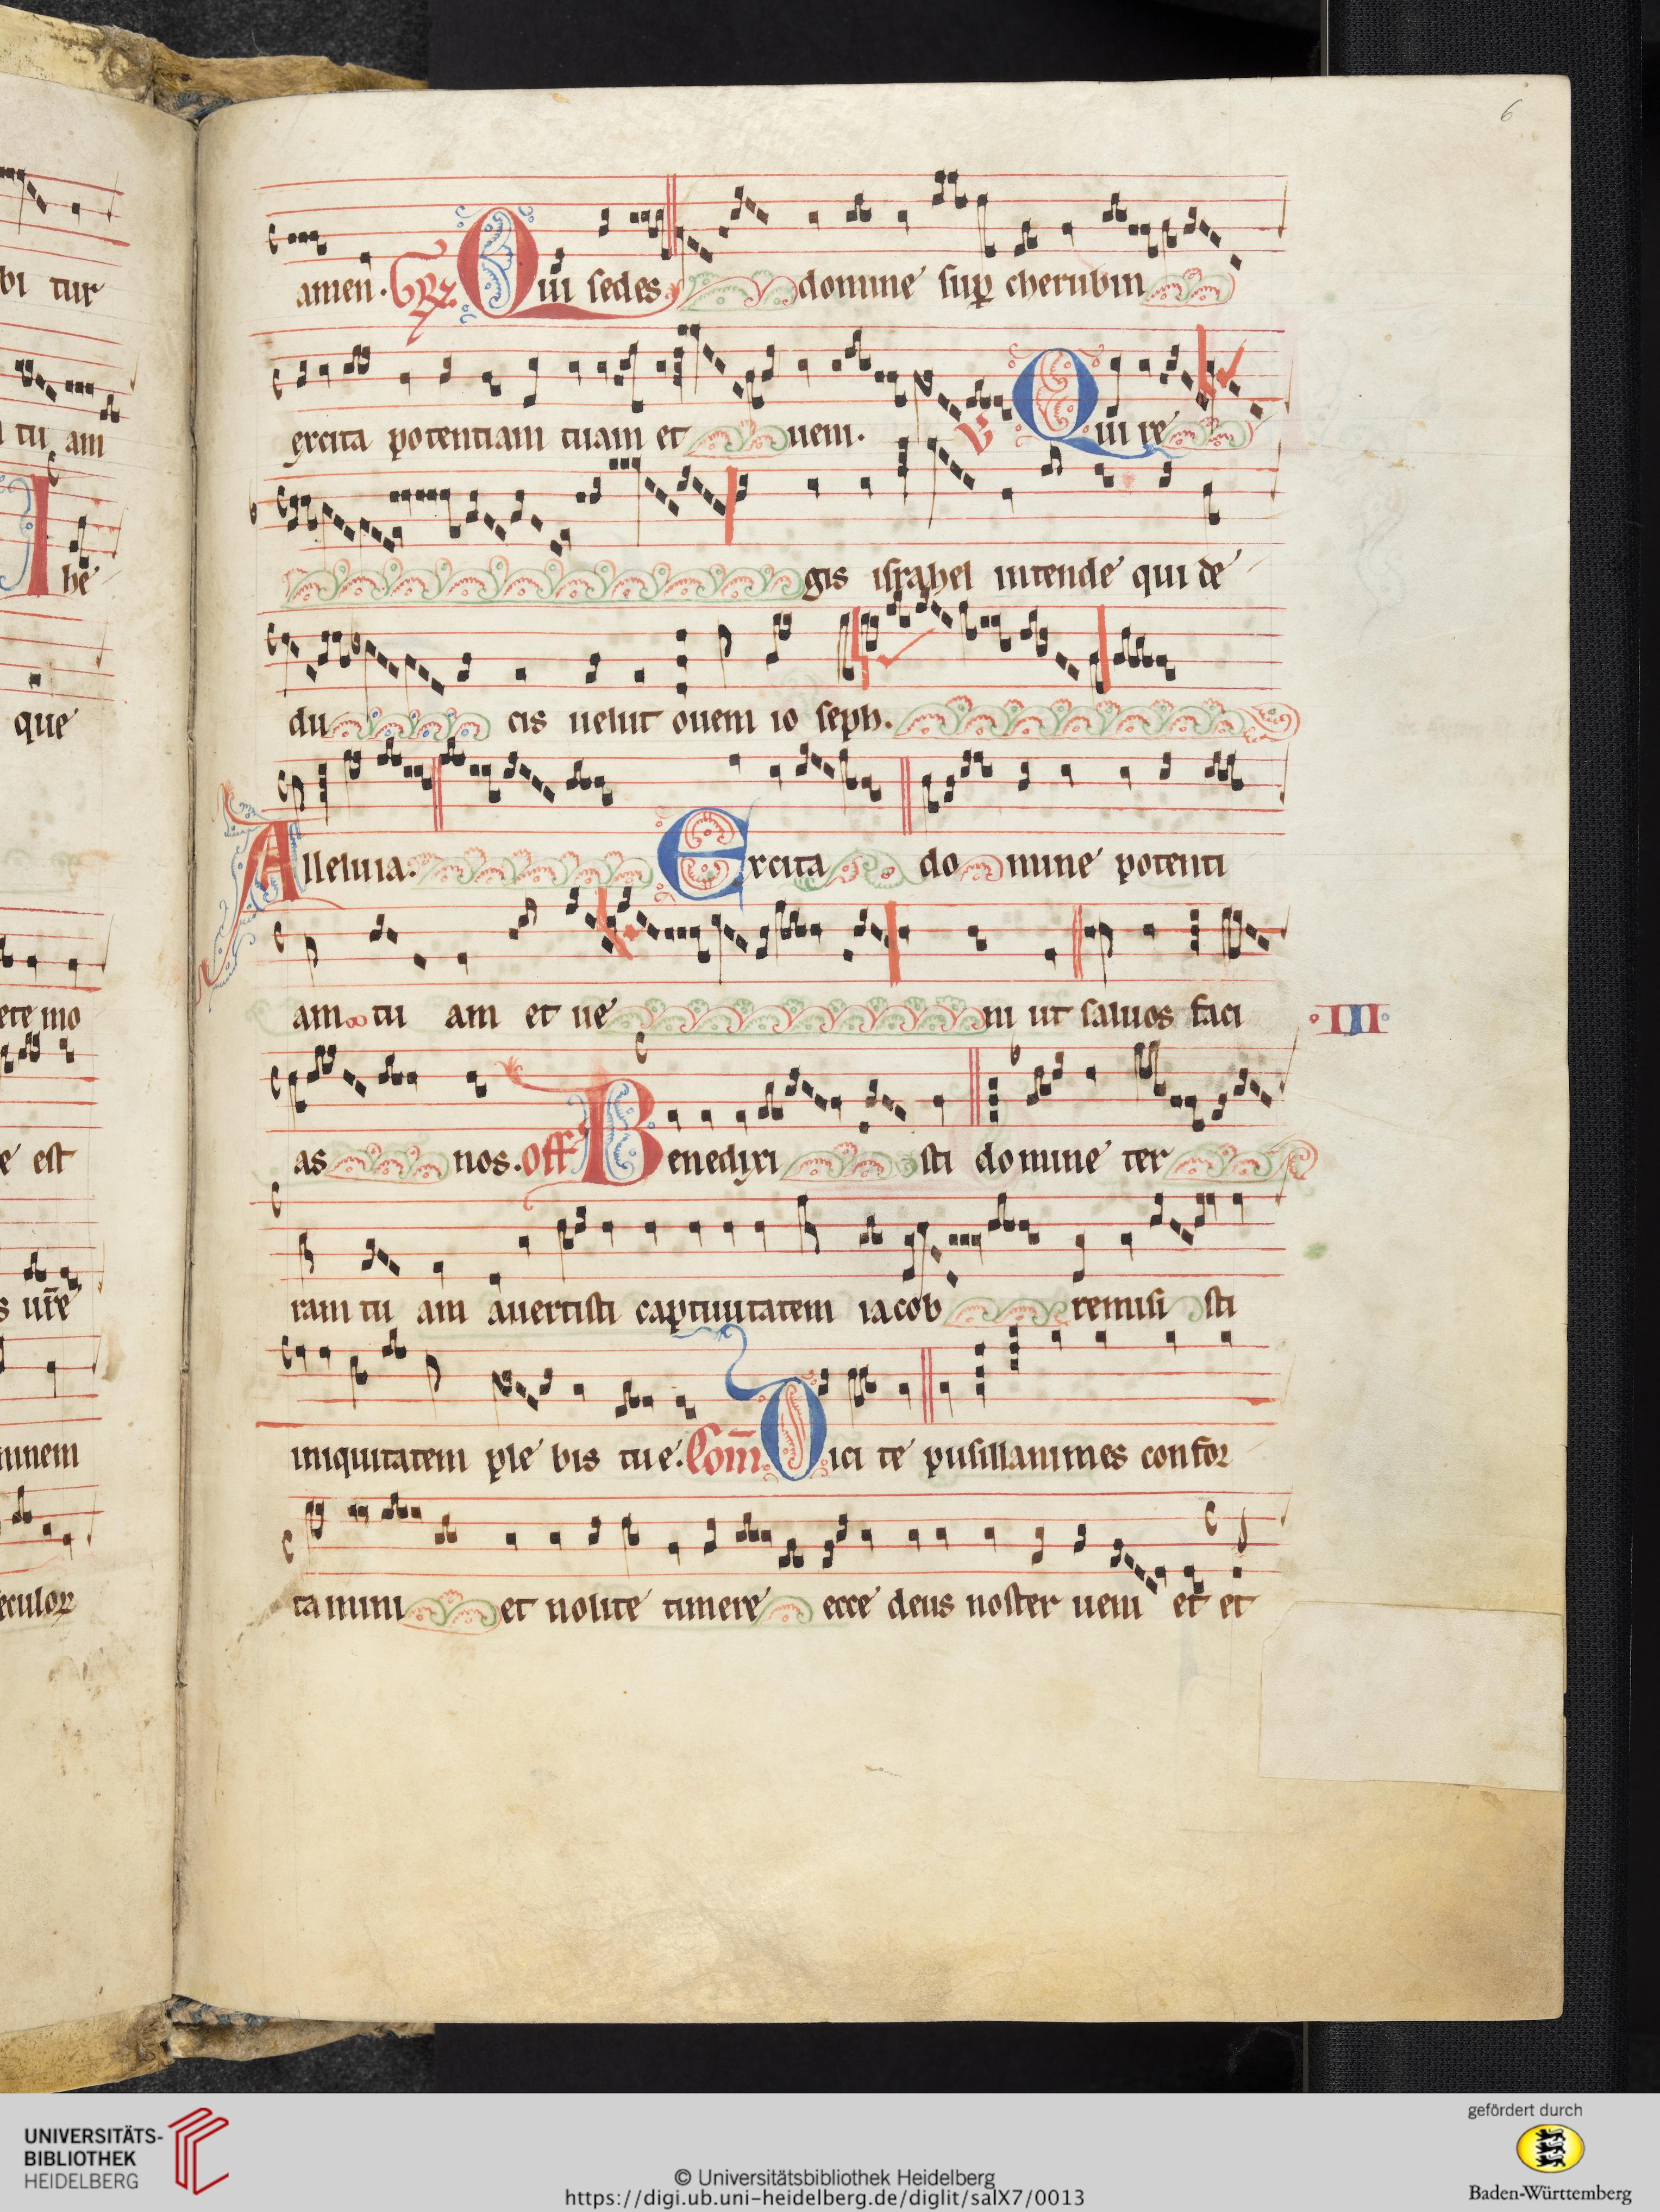 bi tur
tu am
he
que
ete mo
e est
s ure
minem
eculor
6
amen. Grx Qui sedes domine sup cherubin
excita potentiam tuam et ueni. V Qui re
gis israhel intende qui de
du cis uelut ouem io seph.
Alleluia. Excita do mine potenti
am tu am et ue ni ut saluos faci
III
as nos. Off Benedixi sti domine ter
ram tu am auertisti captiuitatem iacob remisi sti
iniquitatem ple bis tue. Com Dici te pusillanimes confor
tamini et nolite timere ecce deus noster ueni et et
UNIVERSITÄTS-
BIBLIOTHEK
HEIDELBERG
© Universitätsbibliothek Heidelberg
https://digi.ub.uni-heidelberg.de/diglit/salX7/0013
gefördert durch
Baden-Württemberg